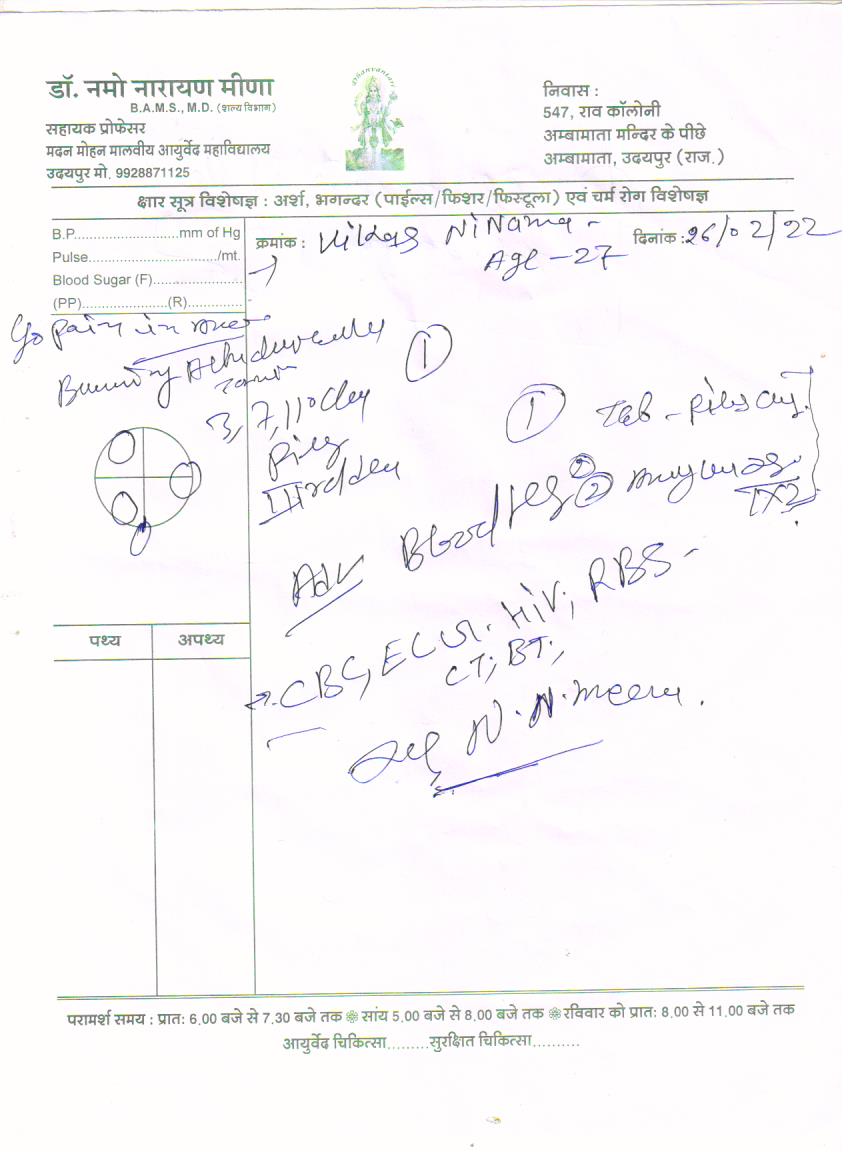 डॉ. नमो नारायण मीणा
B.A.M.S., M.D. (शल्य विभाग)
सहायक प्रोफेसर
मदन मोहन मालवीय आयुर्वेद महाविद्यालय
उदयपुर मो. 9928871125
Dhanvantari
निवास :
547, राव कॉलोनी
अम्बामाता मन्दिर के पीछे
अम्बामाता, उदयपुर (राज.)
क्षार सूत्र विशेषज्ञ : अर्श, भगन्दर (पाईल्स/फिशर/फिस्टूला) एवं चर्म रोग विशेषज्ञ
B.P.........................mm of Hg
Pulse............................../mt.
Blood Sugar (F)......................
(PP).....................(R)..............
क्रमांक : Vikas Ninama -
Age - 27
दिनांक : 26/02/22
pain in
3, 7, 11 o'clock
Piles
①
① Tab -
②
Adv Blood
CBC, HIV, RBS -
CT, BT,
N. N. Meena.
पथ्य
अपथ्य
परामर्श समय : प्रातः 6.00 बजे से 7.30 बजे तक ❁ सांय 5.00 बजे से 8.00 बजे तक ❁ रविवार को प्रातः 8.00 से 11.00 बजे तक
आयुर्वेद चिकित्सा.........सुरक्षित चिकित्सा..........